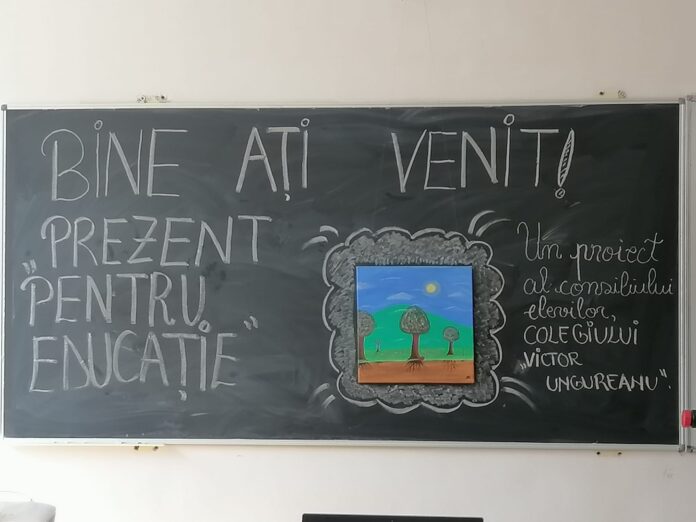 BINE AȚI VENIT!
PREZENT
"PENTRU
EDUCAȚIE"
Un proiect
al consiliului
elevilor,
COLEGIULUI
"VICTOR
UNGUREANU".